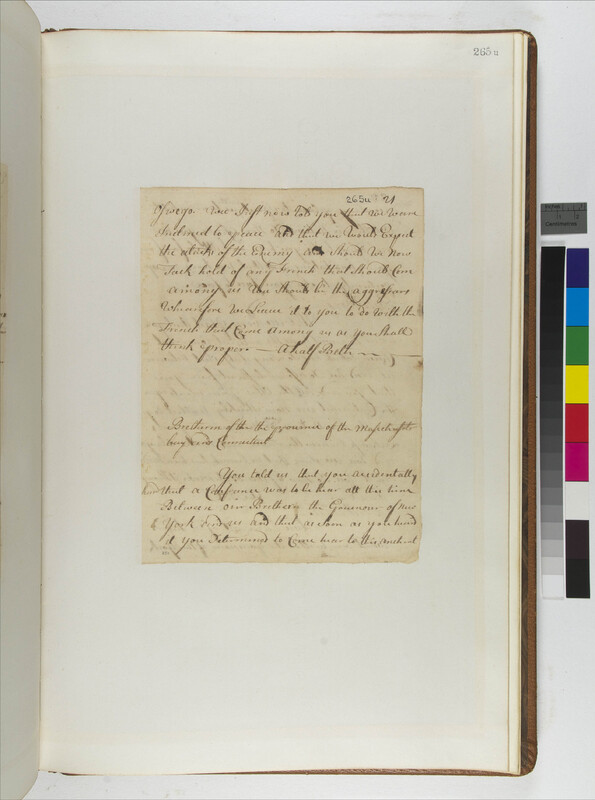 265u
265u 21
Oswego. we Just now told you that we were
Inclined to peace and that we would Expect
the attack of the Enemy as Should we now
Tack hold of any French that Should Come
among us we Should be the aggressors
Wherefore we Leave it to you to do with the
French that Come Among us as you Shall
think proper. — A half Belt —
Bretheren of the the province of the Massachusets
bay and Connecticut
You told us that you accidentally
heard that a Conference was to be hear att this time
Between our Bretheren the Governour of New
York And us and that as soon as you heard
it you Determined to Come hear to this Antient